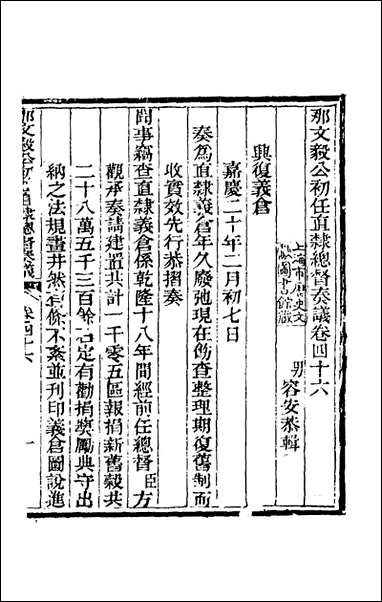 那文毅公初任直隷總督奏議卷四十六
男容安恭輯
上海市歷史文
獻圖書館藏
興復義倉
嘉慶二十年二月初七日
奏為直隷義倉年久廢弛現在飭查整理期復舊制而
收實效先行恭摺奏
聞事竊查直隷義倉係乾隆十八年間經前任總督臣方
觀承奏請建置共計一千零五區報捐新舊穀共
二十八萬五千三百餘石定有勸捐奬勵典守出
納之法規畫井然有條不紊並刊印義倉圖說進
那文毅公初任直隷總督奏議 卷四十六 一